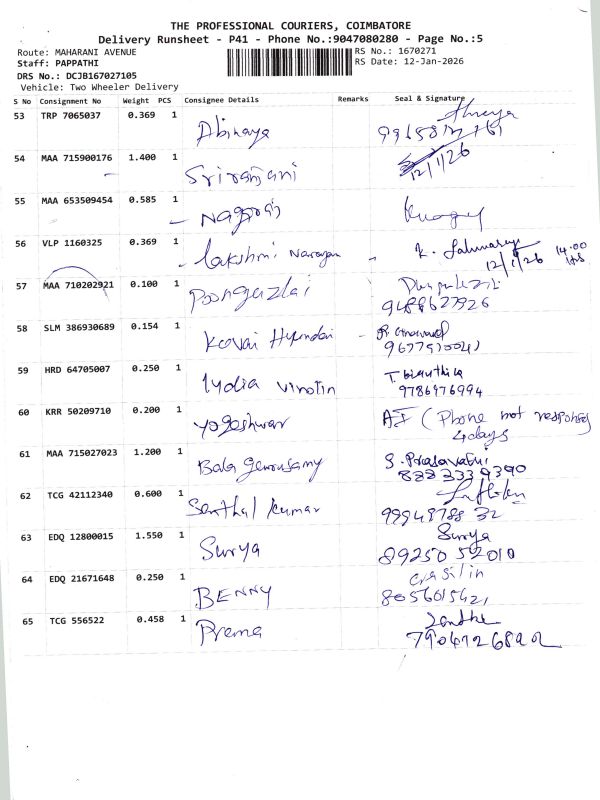 THE PROFESSIONAL COURIERS, COIMBATORE
Delivery Runsheet - P41 - Phone No.:9047080280 - Page No.:5
Route: MAHARANI AVENUE
RS No.: 1670271
Staff: PAPPATHI
RS Date: 12-Jan-2026
DRS No.: DCJB167027105
Vehicle: Two Wheeler Delivery
S No Consignment No Weight PCS Consignee Details Remarks Seal & Signature
53 TRP 7065037 0.369 1 Abinaya
54 MAA 715900176 1.400 1 Sriramani 12/1/26
55 MAA 653509454 0.585 1 Nagaraj
56 VLP 1160325 0.369 1 Lakshmi Narayan 12/1/26 14.00 Hrs
57 MAA 710202921 0.100 1 Poongazlai
9488627926
58 SLM 386930689 0.154 1 Kovai Hyundai
59 HRD 64705007 0.250 1 lydia vinolin
9786976994
60 KRR 50209710 0.200 1 yogeshwar AI (Phone not response
4 days
61 MAA 715027023 1.200 1 Bala Gurusamy
8883339390
62 TCG 42112340 0.600 1 Senthal kumar
63 EDQ 12800015 1.550 1 Surya Surya
89250 52010
64 EDQ 21671648 0.250 1 BENNY
8056015621
65 TCG 556522 0.458 1 Prema